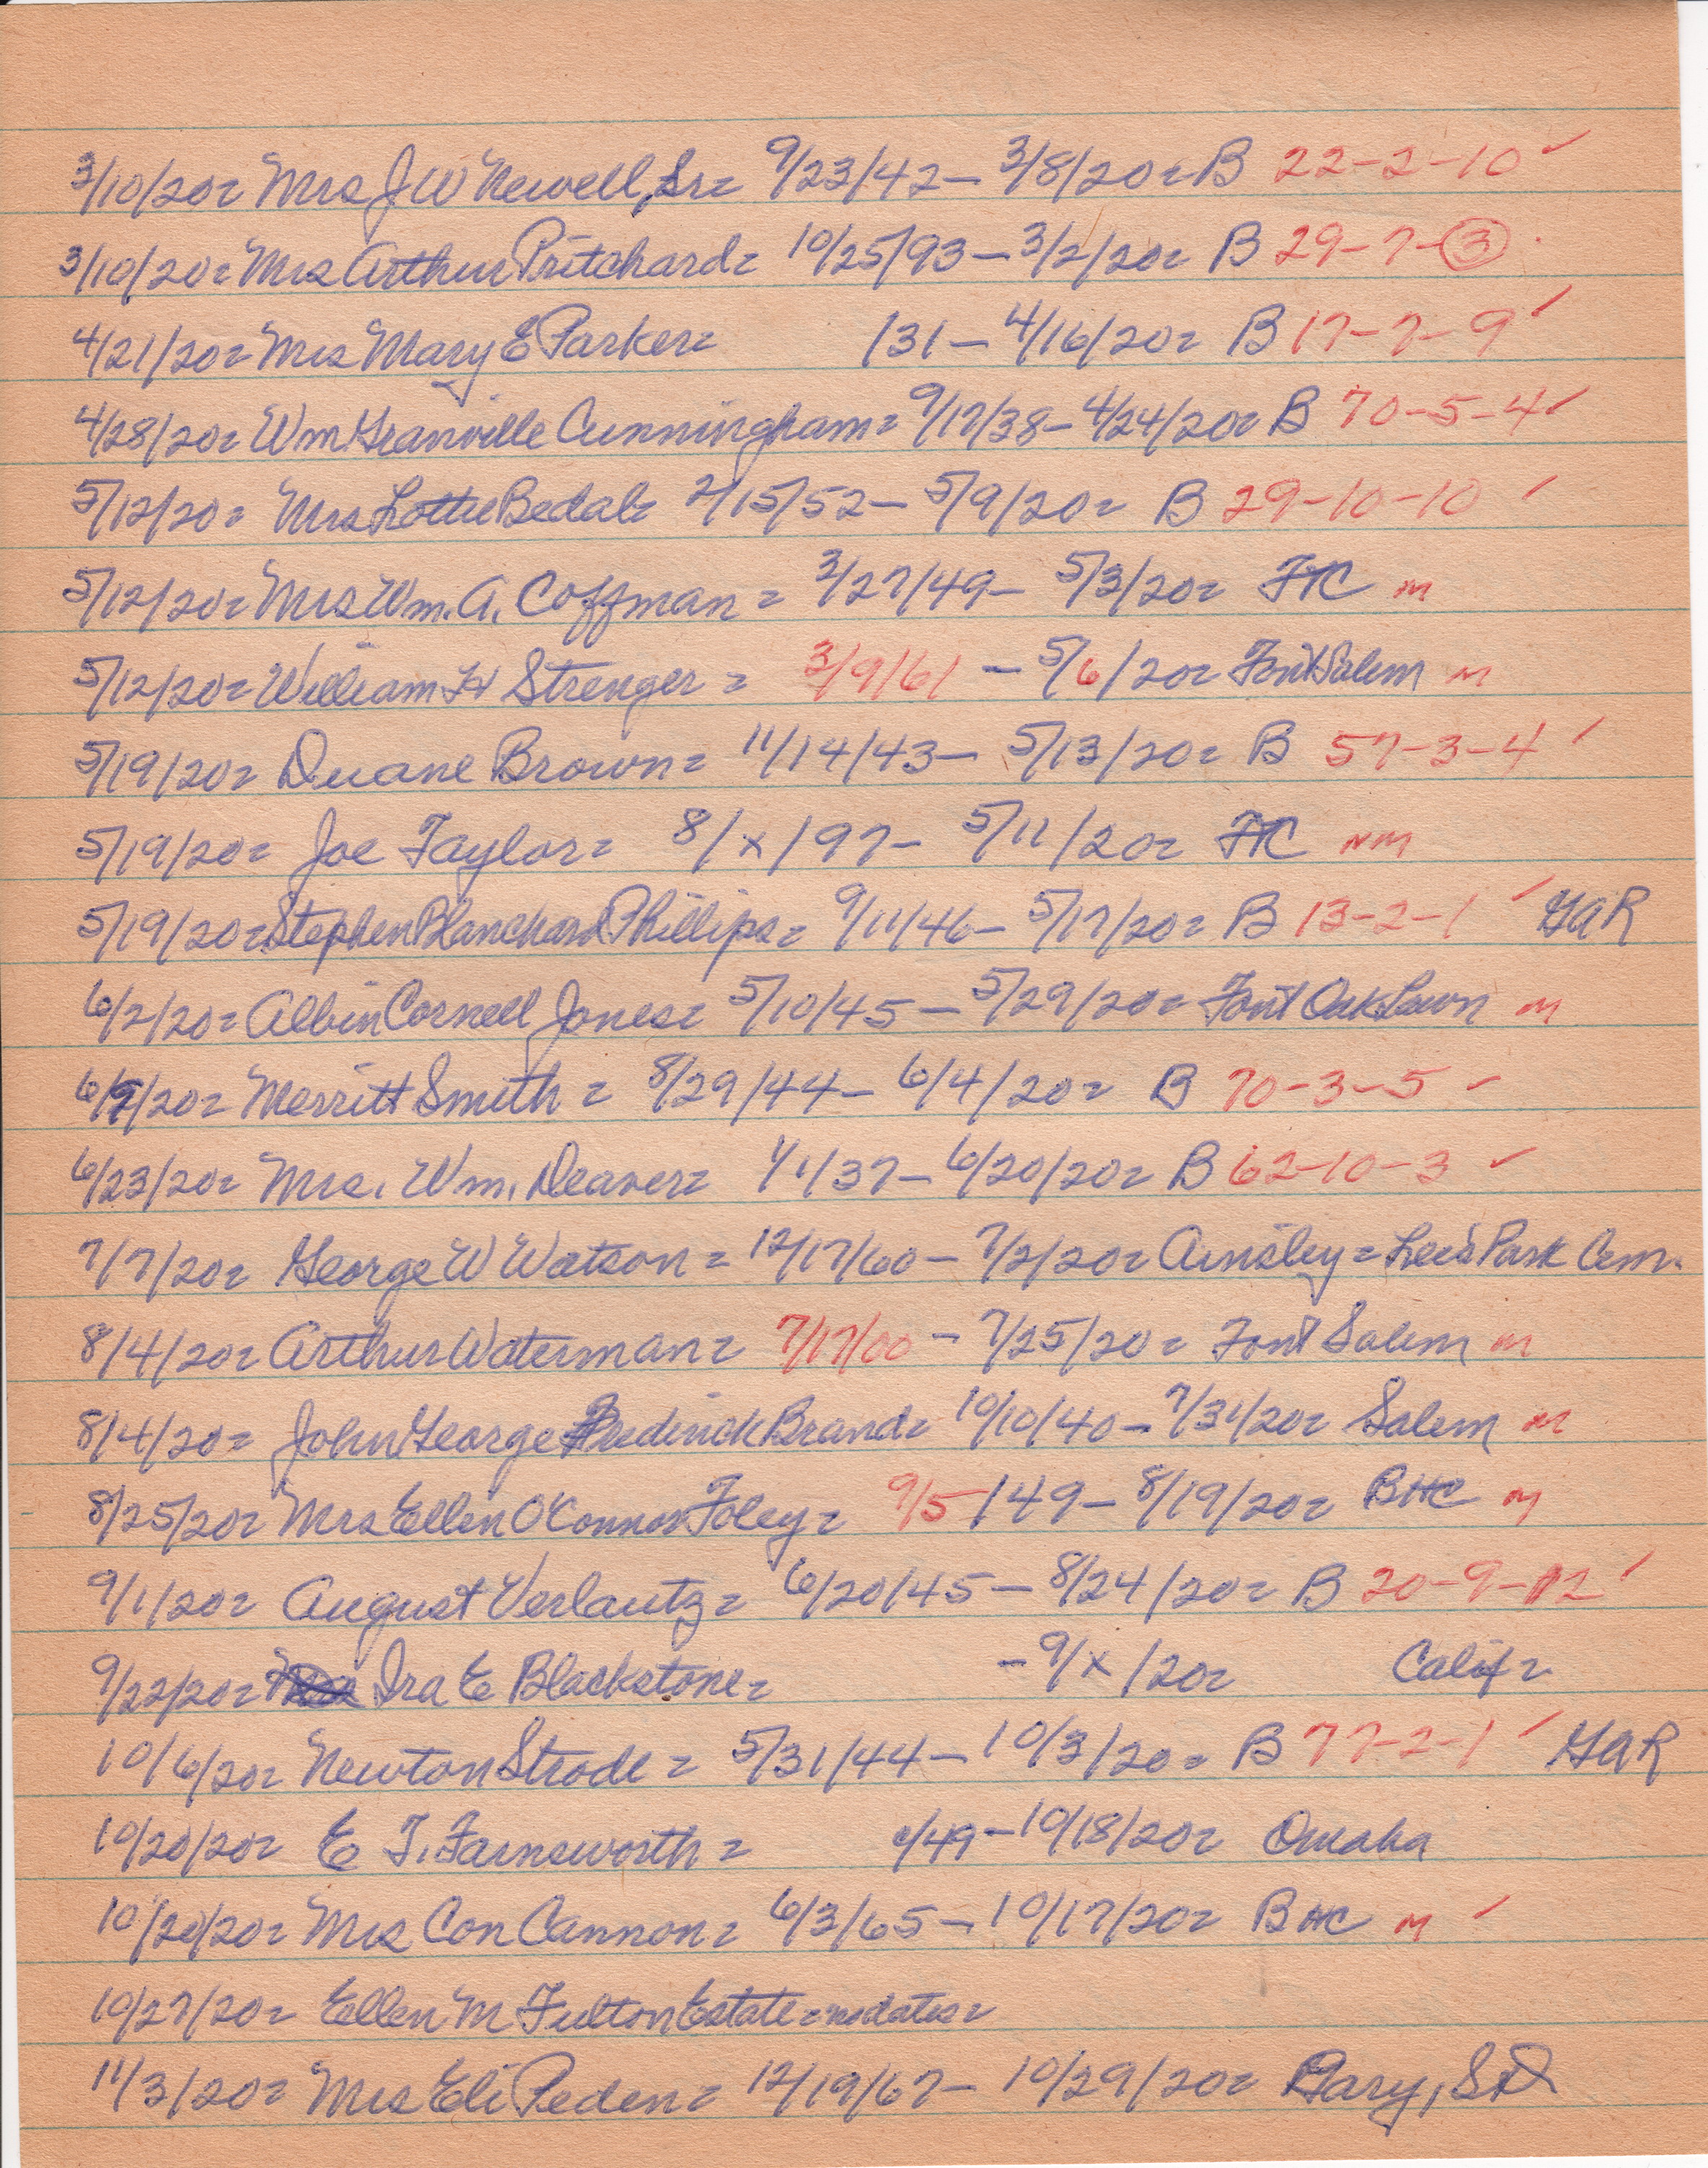 3/10/20= Mrs J W Newell, Sr= 9/23/42- 3/8/20= B 22-2-10 ✓
3/10/20= Mrs Arthur Pritchard= 10/25/93-3/2/20= B 29-7-3
4/21/20= Mrs Mary E Parker= /31- 4/16/20= B 17-7-9 ✓
4/28/20= Wm Granville Cunningham= 9/17/38- 4/24/20= B 70-5-4 ✓
5/12/20= Mrs Lottie Bedal= 2/15/52- 5/9/20= B 29-10-10 ✓
5/12/20= Mrs Wm. A. Coffman= 3/27/49- 5/3/20= FTC m
5/12/20= William H Strenger= 3/9/61 - 5/6/20= Font Salem m
5/19/20= Duane Brown= 11/14/43- 5/13/20= B 57-3-4 ✓
5/19/20= Joe Taylor= 8/x/97- 5/11/20= FTC nm
5/19/20= Stephen Blanchard Phillips= 9/11/46- 5/17/20= B 13-2-1 ✓ GAR
6/2/20= Albin Cornell Jones= 5/10/45- 5/29/20= Font Oak Lawn m
6/9/20= Merritt Smith= 8/29/44- 6/4/20= B 70-3-5 ✓
6/23/20= Mrs. Wm. Deaver= 1/1/37- 6/20/20= B 62-10-3 ✓
7/7/20= George W Watson= 12/17/60- 7/2/20= Ainsley= Lee's Park Cem.
8/4/20= Arthur Waterman= 7/17/00 - 7/25/20= Font Salem m
8/4/20= John George Frederick Brand= 10/10/40- 7/31/20= Salem m
8/25/20= Mrs Ellen O'Connor Foley= 9/5/49- 8/19/20= BHC m
9/1/20= August Verlautz= 6/20/45- 8/24/20= B 20-9-12 ✓
9/22/20= Ira E Blackstone= -9/x/20= Calif=
10/6/20= Newton Strode= 5/31/44- 10/3/20= B 77-2-1 ✓ GAR
10/20/20= E T. Farnsworth= c/49-10/18/20= Omaha
10/20/20= Mrs Con Cannon= 6/3/65- 10/17/20= BHC m ✓
10/27/20= Ellen M Fulton Estate= no dates=
11/3/20= Mrs Eli Peden= 12/19/67- 10/29/20= Gary, SD